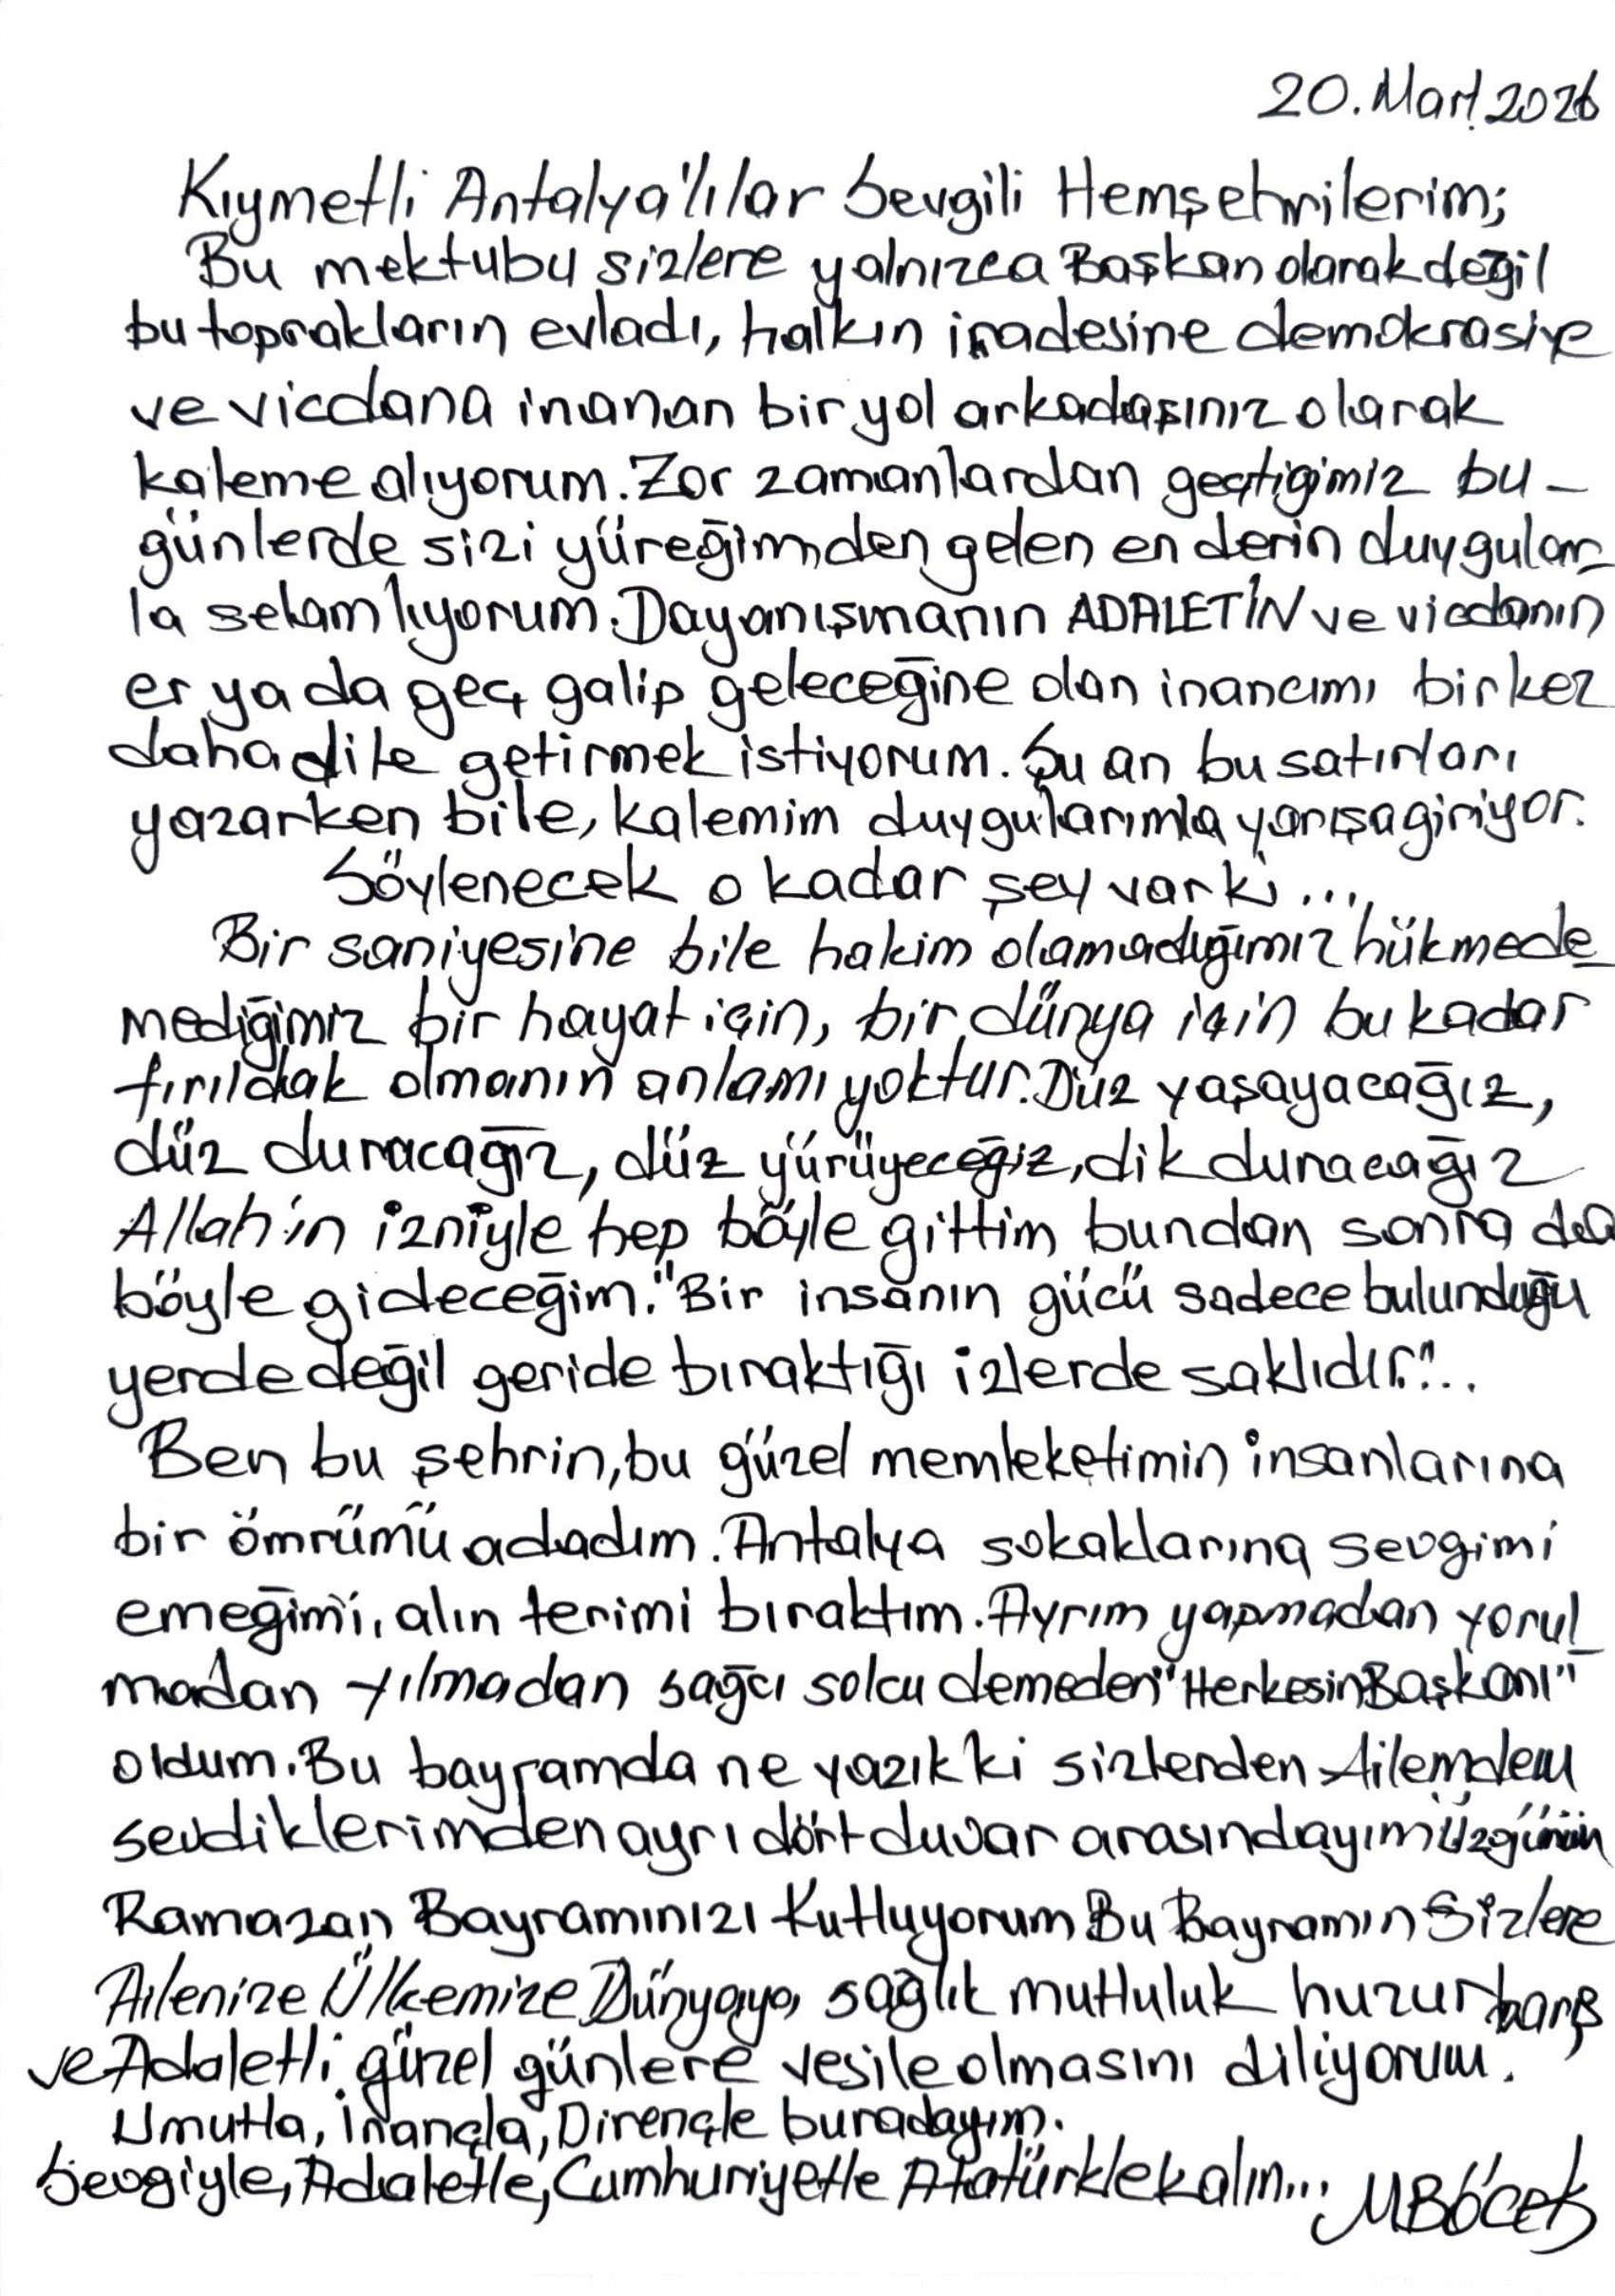 20.Mart.2026
Kıymetli Antalya'lılar Sevgili Hemşehrilerim;
Bu mektubu sizlere yalnızca Başkan olarak değil
bu toprakların evladı, halkın iradesine demokrasiye
ve vicdana inanan bir yol arkadaşınız olarak
kaleme alıyorum. Zor zamanlardan geçtiğimiz bu-
günlerde sizi yüreğimden gelen en derin duygular-
la selamlıyorum. Dayanışmanın ADALETİN ve vicdanın
er ya da geç galip geleceğine olan inancımı bir kez
daha dile getirmek istiyorum. Şu an bu satırları
yazarken bile, kalemim duygularımla yarışa giriyor.
Söylenecek o kadar şey var ki....
Bir saniyesine bile hakim olamadığımız hükmede-
mediğimiz bir hayat için, bir dünya için bu kadar
fırıldak olmanın anlamı yoktur. Düz yaşayacağız,
düz duracağız, düz yürüyeceğiz, dik duracağız
Allah'ın izniyle hep böyle gittim bundan sonra da
böyle gideceğim. "Bir insanın gücü sadece bulunduğu
yerde değil geride bıraktığı izlerde saklıdır."..
Ben bu şehrin, bu güzel memleketimin insanlarına
bir ömrümü adadım. Antalya sokaklarına sevgimi
emeğimi, alın terimi bıraktım. Ayrım yapmadan yorul-
madan yılmadan sağcı solcu demeden "Herkesin Başkanı"
oldum. Bu bayramda ne yazık ki sizlerden Ailemden
sevdiklerimden ayrı dört duvar arasındayım Üzgünüm
Ramazan Bayramınızı Kutluyorum Bu Bayramın Sizlere
Ailenize Ülkemize Dünyaya sağlık mutluluk huzur barış
ve Adaletli güzel günlere vesile olmasını diliyorum.
Umutla, İnançla, Dirençle buradayım.
Sevgiyle, Adaletle, Cumhuriyetle Atatürkle kalın... MBöcek